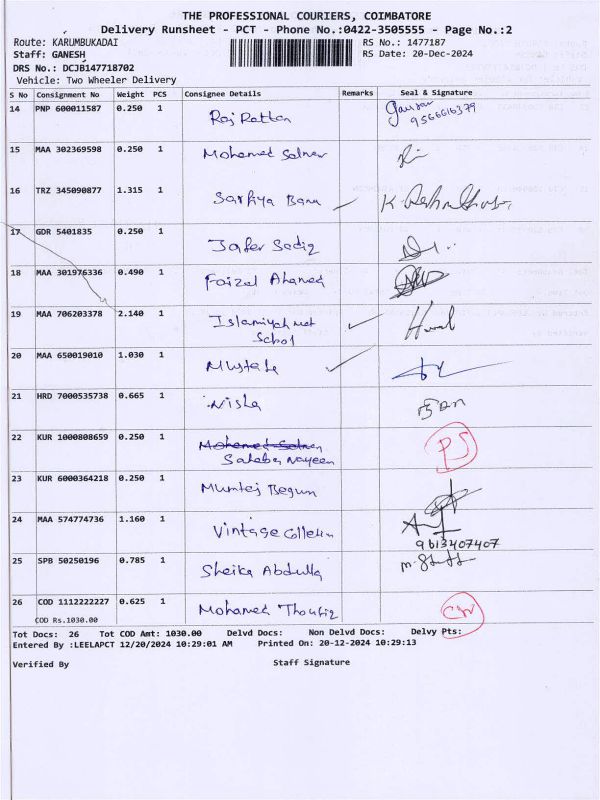 THE PROFESSIONAL COURIERS, COIMBATORE
Delivery Runsheet - PCT - Phone No.:0422-3505555 - Page No.:2
Route: KARUMBUKADAI RS No.: 1477187
Staff: GANESH RS Date: 20-Dec-2024
DRS No.: DCJB147718702
Vehicle: Two Wheeler Delivery
S No Consignment No Weight PCS Consignee Details Remarks Seal & Signature
14 PNP 600011587 0.250 1 Raj Rattan
9566616379
15 MAA 302369598 0.250 1 Mohamed Salman
16 TRZ 345090877 1.315 1 Sarhya Banu
17 GDR 5401835 0.250 1 Jafer Sadiq
18 MAA 301976336 0.490 1 Faizal Ahamed
19 MAA 706203378 2.140 1 Islamiyah mat
School
20 MAA 650019010 1.030 1 Mustafa
21 HRD 7000535738 0.665 1 Nisha
22 KUR 1000808659 0.250 1 Mohamed Salman PS
Saheba Nayeen
23 KUR 6000364218 0.250 1 Mumtej Begum
24 MAA 574774736 1.160 1 Vintage Colletin
9613407407
25 SPB 50250196 0.785 1 Sheika Abdulla
26 COD 1112222227 0.625 1 Mohamed Thoufiq
COD Rs.1030.00
Tot Docs: 26 Tot COD Amt: 1030.00 Delvd Docs: Non Delvd Docs: Delvy Pts:
Entered By :LEELAPCT 12/20/2024 10:29:01 AM Printed On: 20-12-2024 10:29:13
Verified By Staff Signature